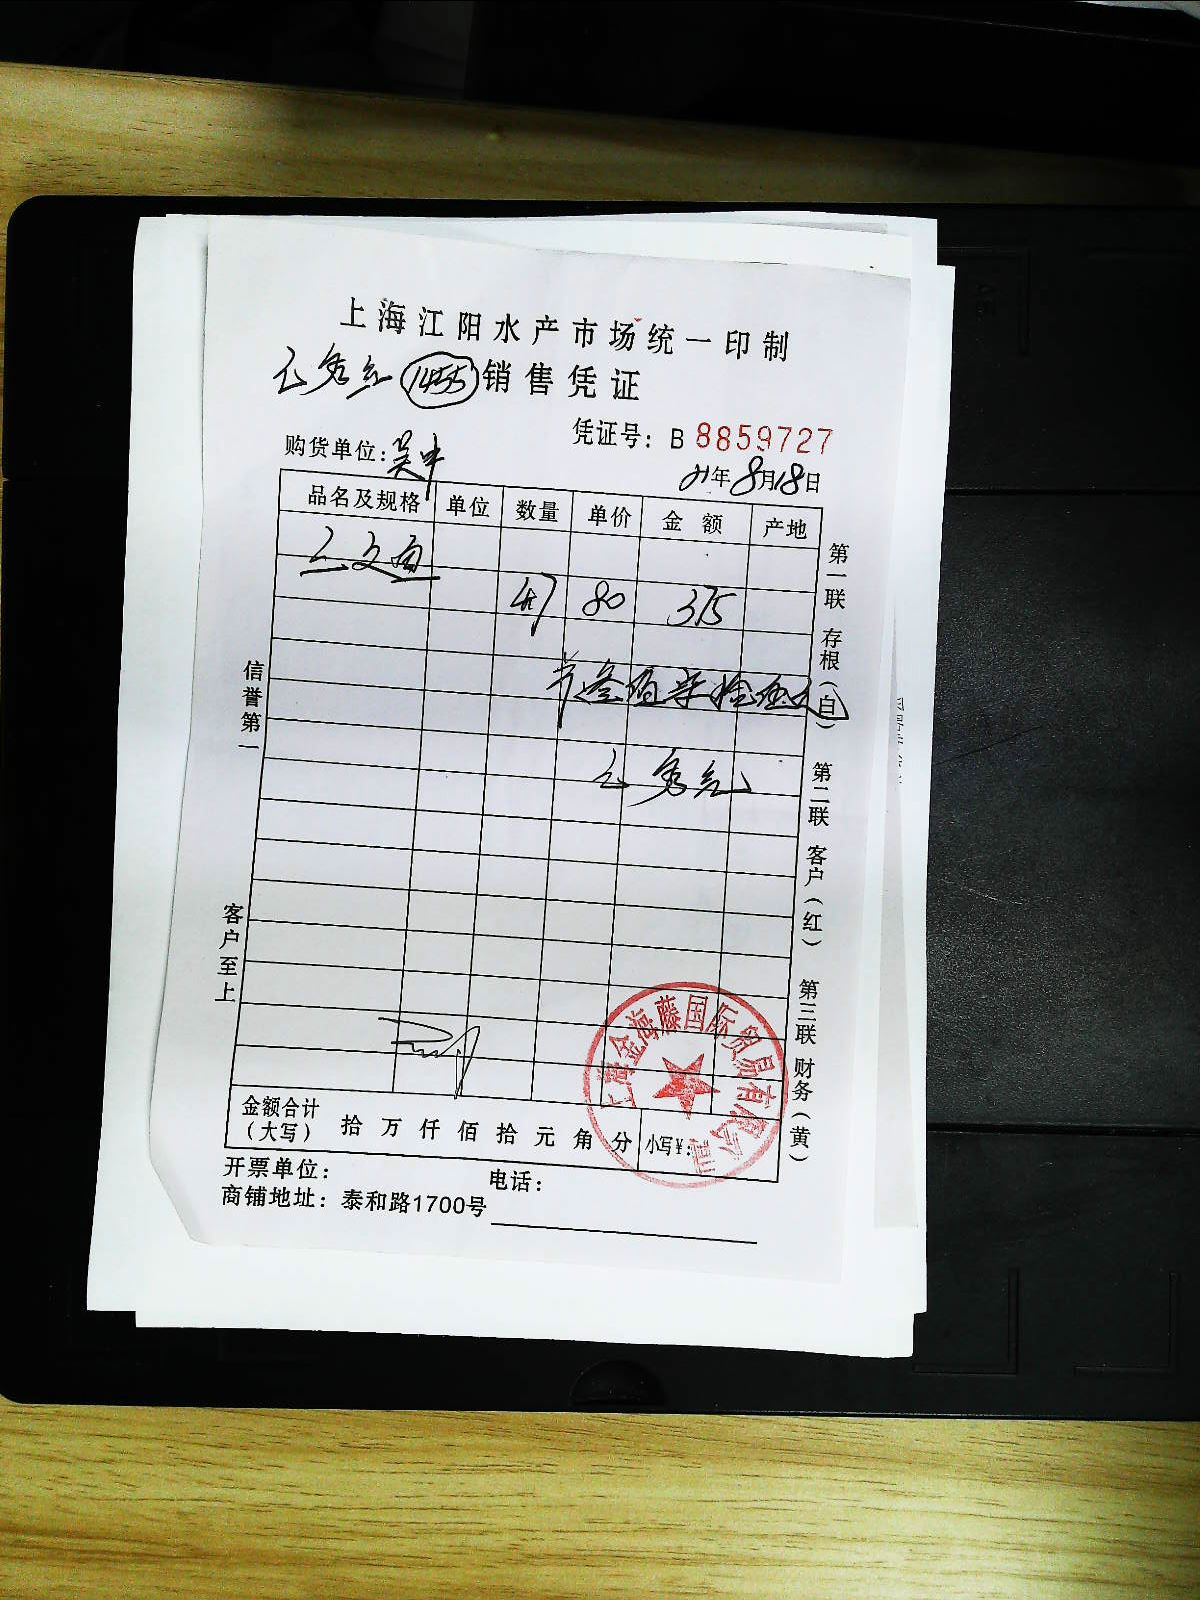 上海江阳水产市场统一印制
1455 销售凭证
凭证号：B 8859727
购货单位：吴中
21年8月18日
品名及规格 单位 数量 单价 金额 产地
三文鱼
47 80 375
叁佰柒拾伍元
信誉第一
客户至上
第一联 存根（白）
第二联 客户（红）
第三联 财务（黄）
上海金海藤国际贸易有限公司
金额合计（大写） 拾 万 仟 佰 拾 元 角 分 小写¥：
开票单位： 电话：
商铺地址：泰和路1700号